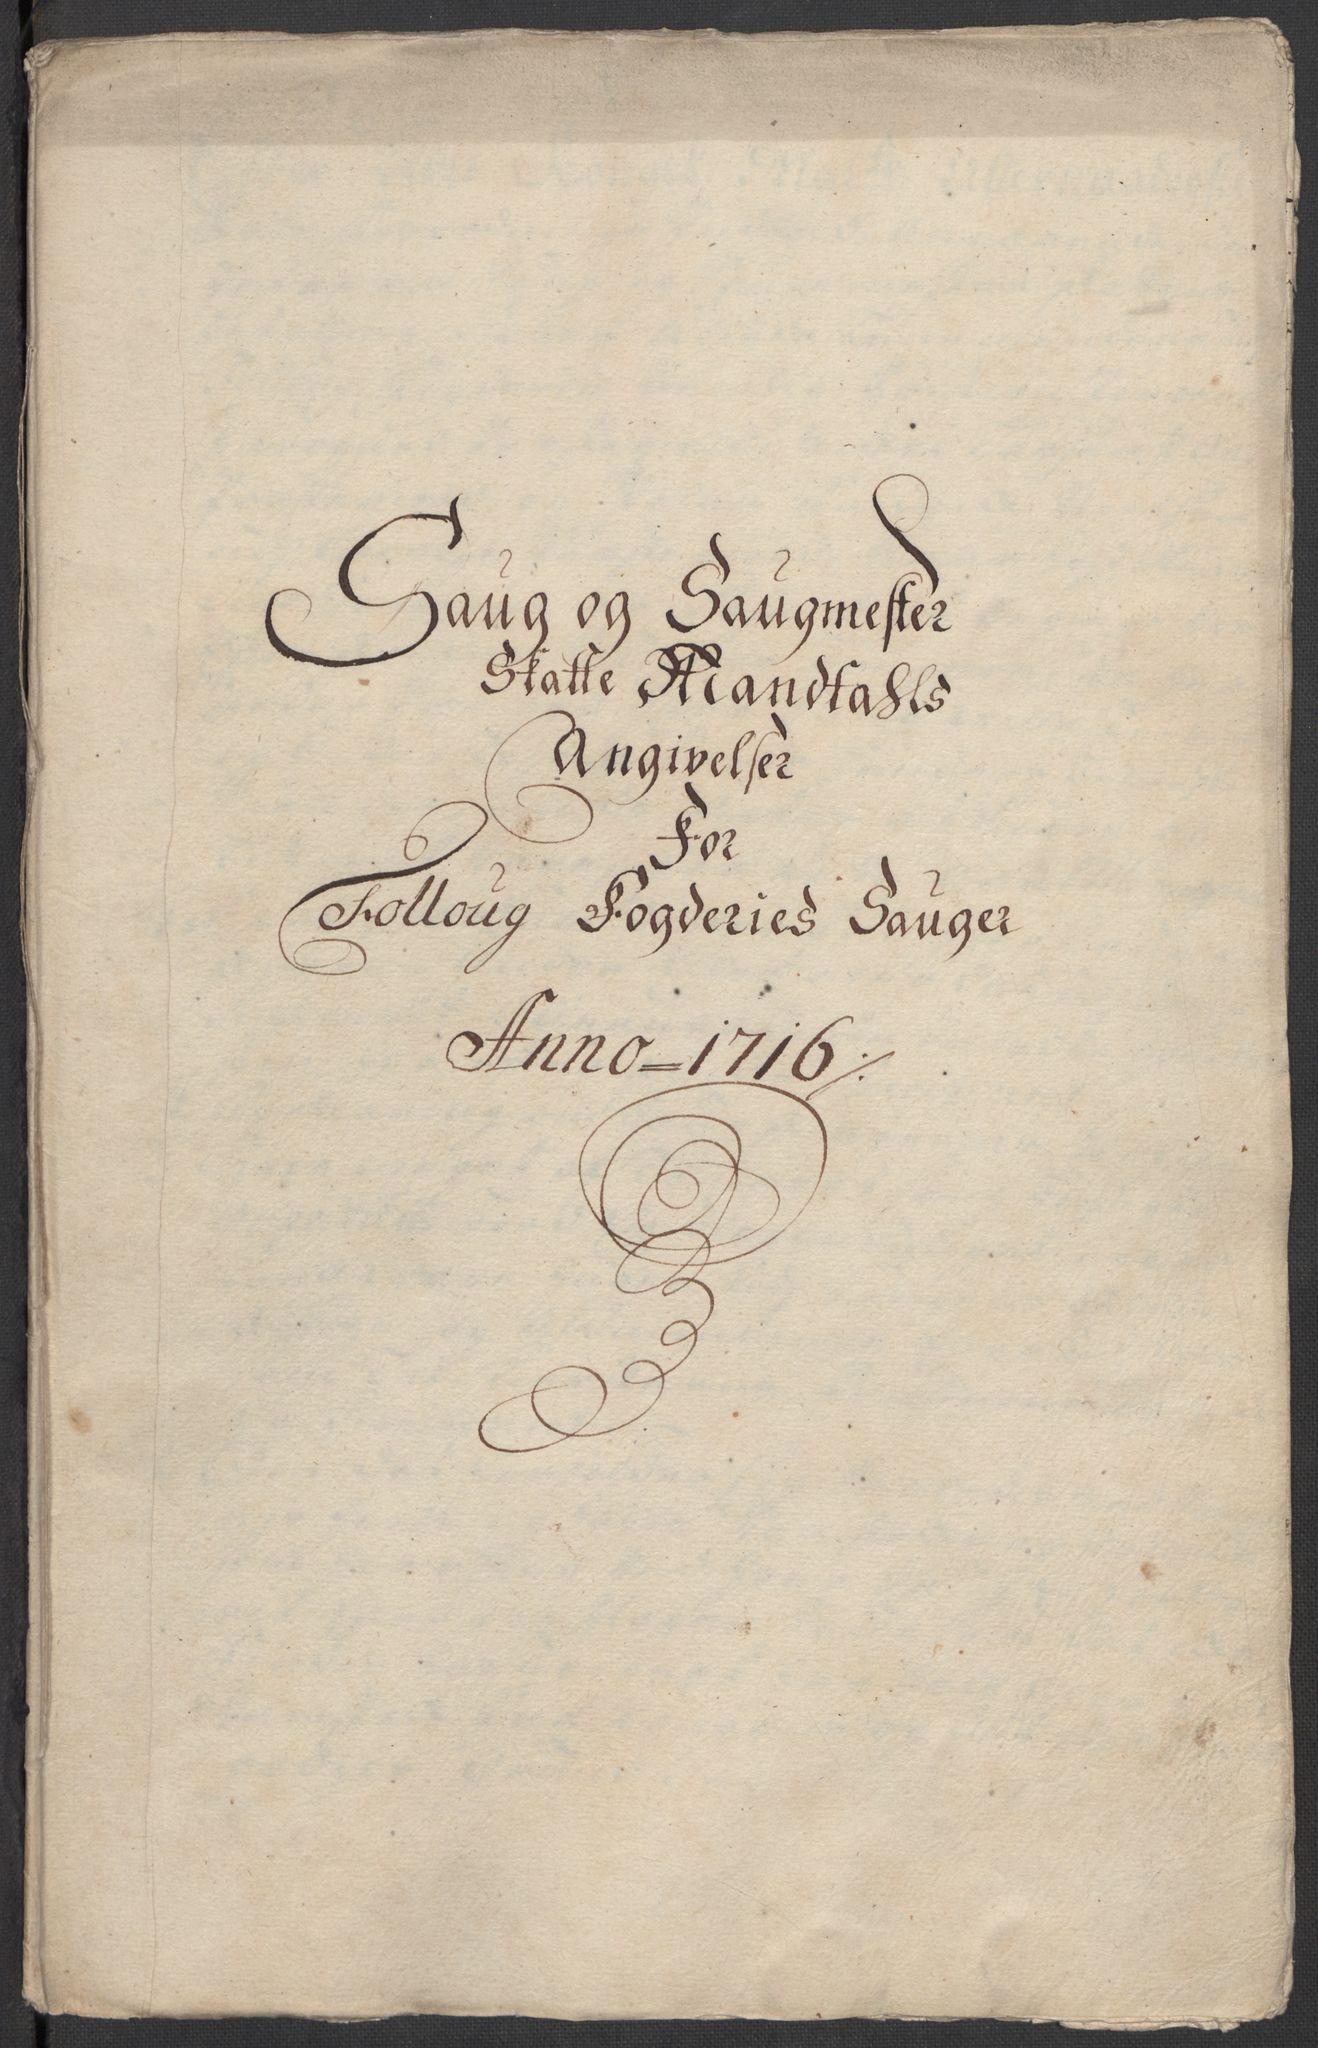 Saug og Saugmester
Skatte Mandtahls
Angivelser
For
Folloug Fogderies Sauger
Anno 1716